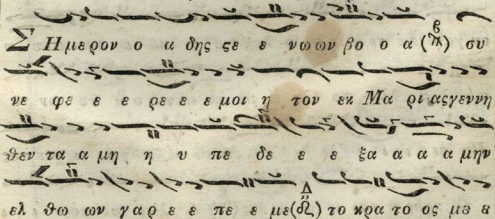 Σ Ημερον ο α δης ςε ε νω ων βο ο α (π̈) συ
νε φε ε ε ρε ε ε μοι η τον εκ Μα ρι ας γεννη
θεν τα α μη η υ πε δε ε ε ξα α α α μην
ελ θω ων γαρ ε ε πε ε με (δι) το κρα το ος με ε